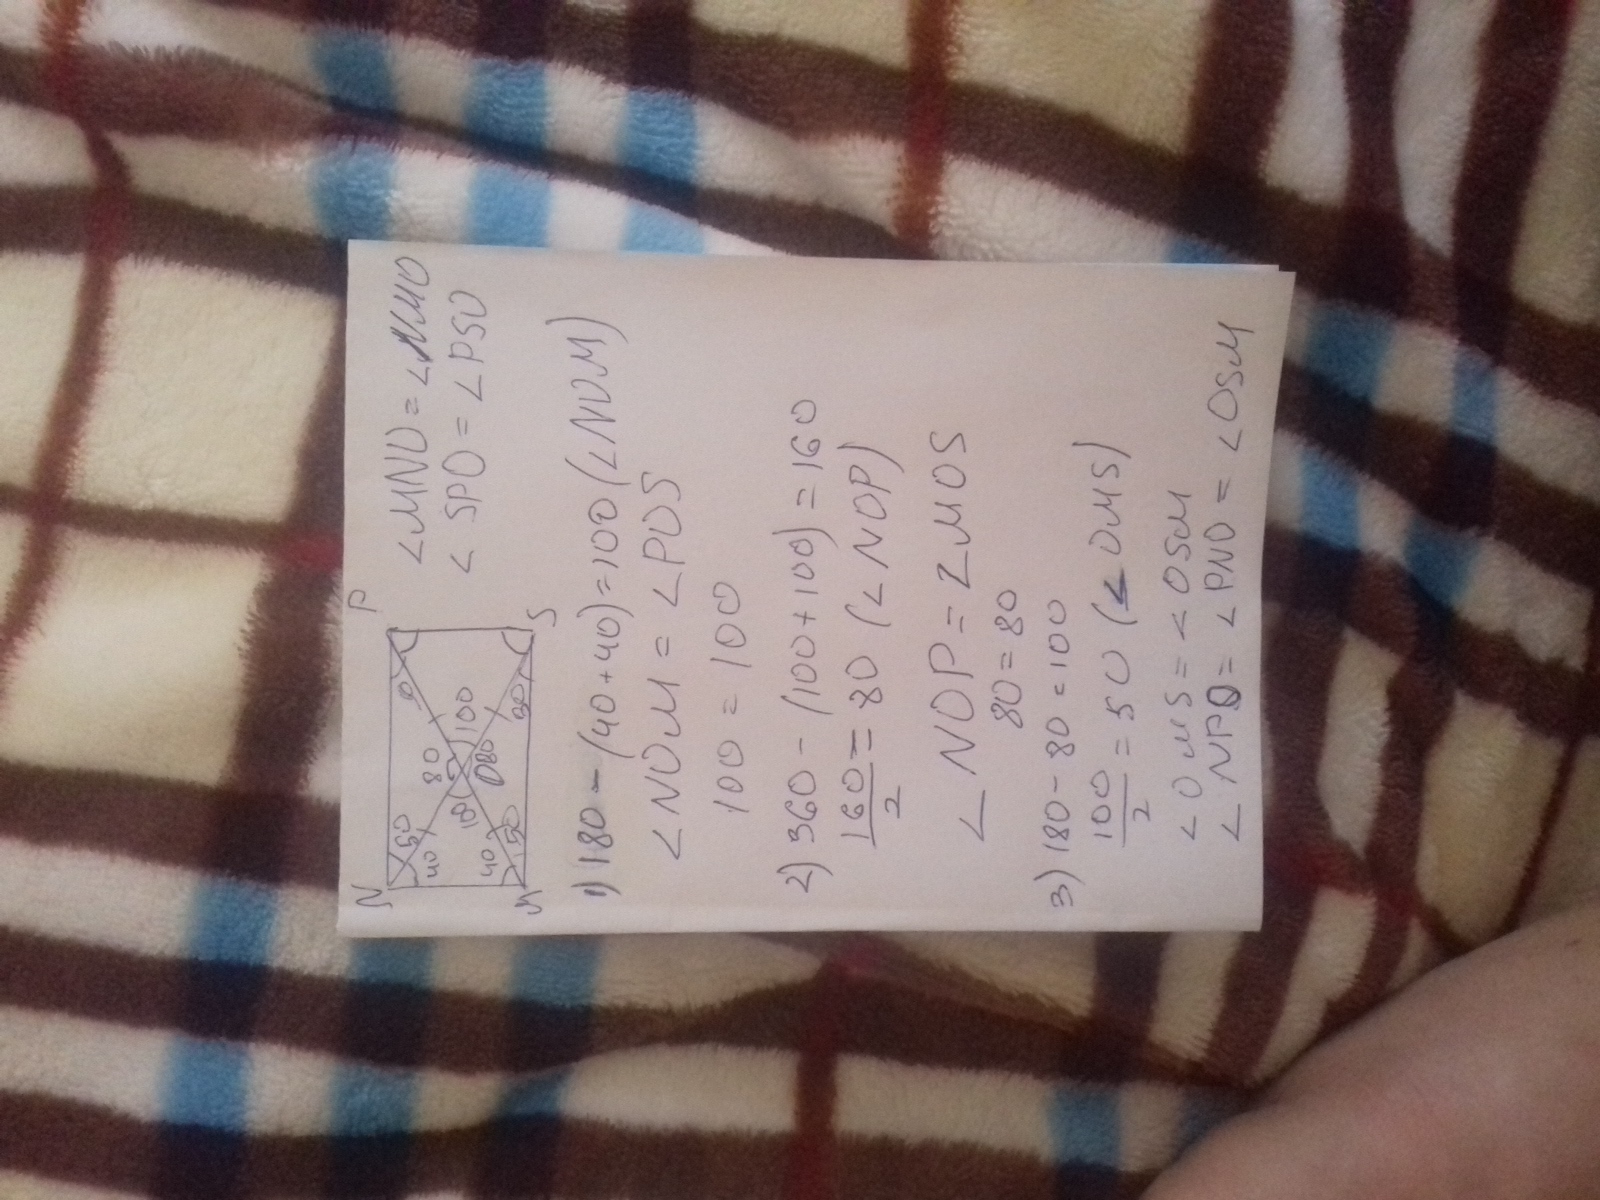 N
P
M
S
50
40
40
50
80
100
80
∠MNO = ∠NMO
∠SPO = ∠PSO
1) 180 - (40+40) = 100 (∠NOM)
∠NOM = ∠POS
100 = 100
2) 360 - (100+100) = 160
160/2 = 80 (∠NOP)
∠NOP = ∠MOS
80 = 80
3) 180 - 80 = 100
100/2 = 50 (∠OMS)
∠OMS = ∠OSM
∠NPO = ∠PNO = ∠OSM